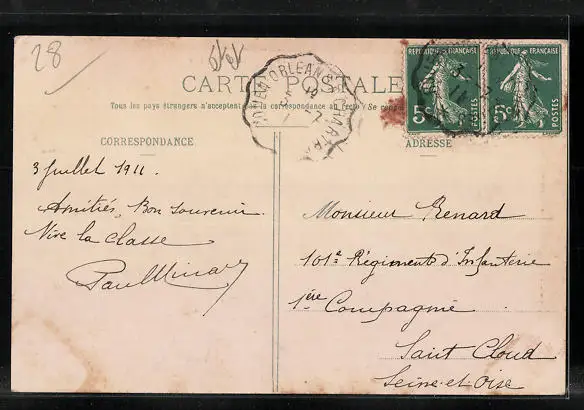 28
CARTE POSTALE
Tous les pays étrangers n'acceptent la correspondance au recto
CORRESPONDANCE
ADRESSE
REPUBLIQUE FRANÇAISE
5c
POSTES
REPUBLIQUE FRANÇAISE
5c
POSTES
ORLEANS
3 Juillet 1911.
Amitiés, Bon souvenir.
Vive la classe
Paul
Monsieur Renard
101e Régiment d'Infanterie
1ère Compagnie
Saint Cloud
Seine-et-Oise